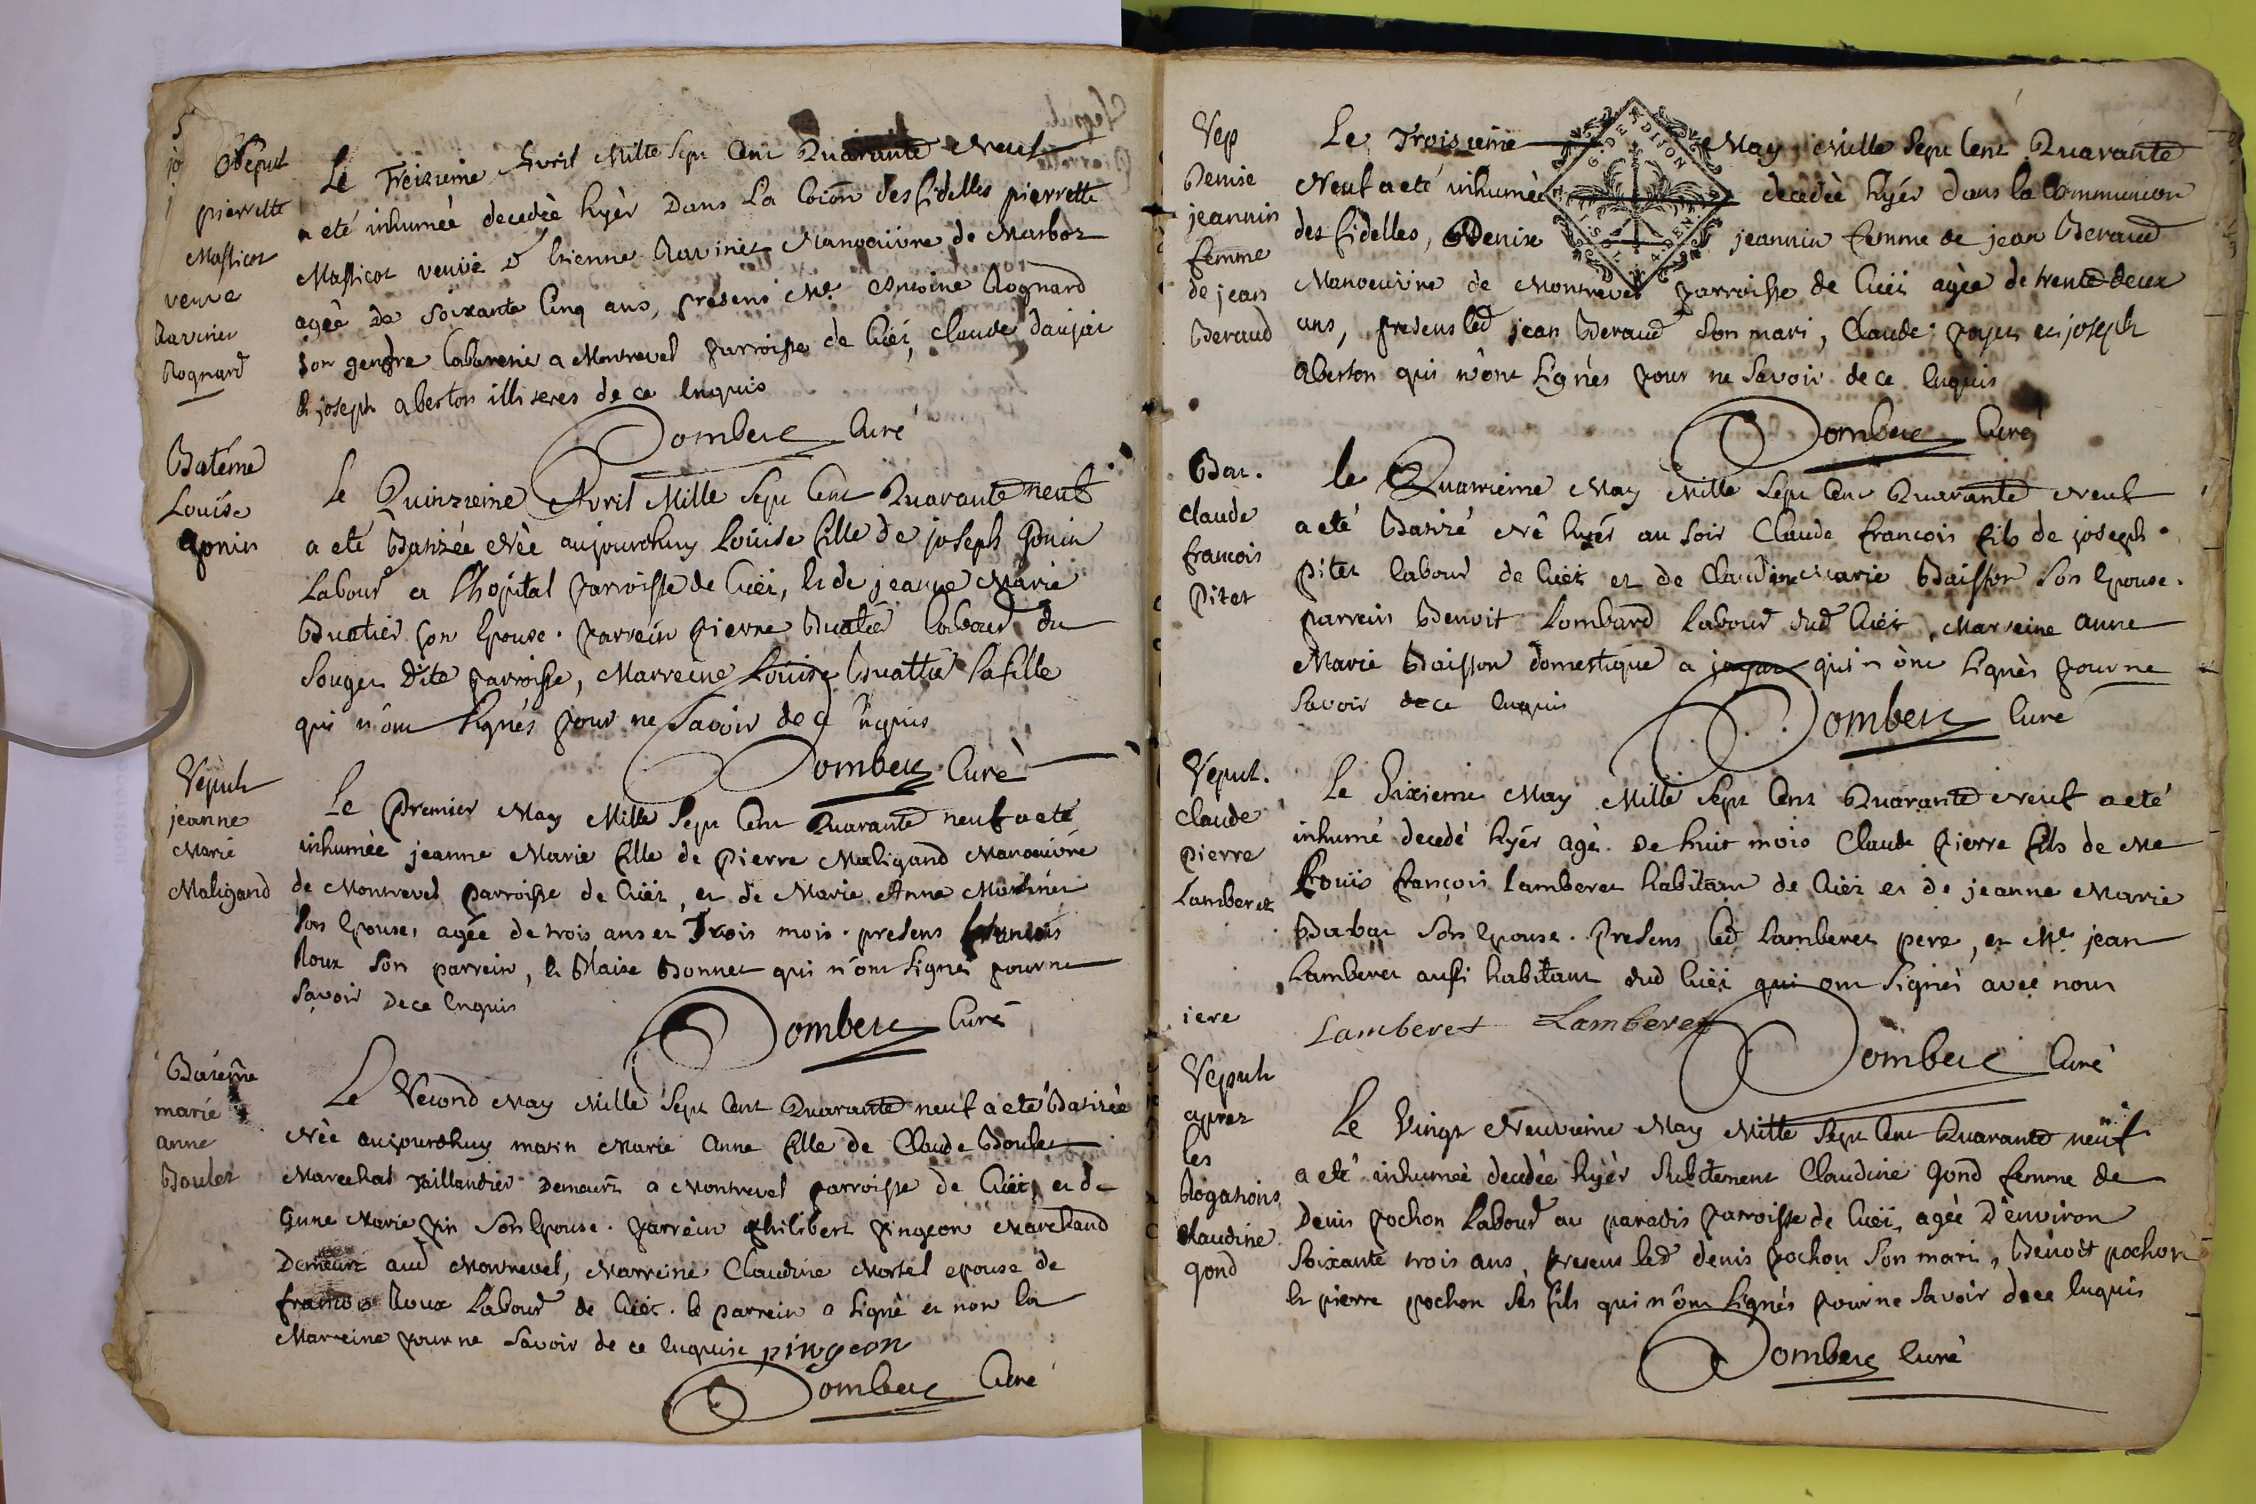 5
Sepul
pierrette
Massicot
veuve
Ravinier
Rognard
Le Treizieme Avril Mille Sept Cent Quarante Neuf
a eté inhumeé decedeè hyèr Dans La Coïon des fidelles pierrette
Massicot veuve d'Etienne Ravinier Manoeuvre de Marboz
ageè de Soixante Cinq ans, presens Me. Antoine Rognard
Son gendre Cabaretie a Montrevel parroisse de Cuet, Claude daujat
et joseph aberton illiteres de ce Enquis
Dombeic Curé
Batéme
Louise
gonin
Le Quinzieme Avril Mille Sept Cent Quarante neuf
a eté Batizée Née aujourdhuy Louise fille de joseph gonin
Labour a l'hopital parroisse de Cuet, et de jeanne Marie
Buatier son Epouse. parrein pierre Buatier labour du
Souget dite parroisse, Marreine Louise Buattié sa fille
qui n'ont signés pour ne Savoir de ce Enquis
Dombeic Curè
Sepult
jeanne
Marie
Maligand
Le Premier May Mille Sept Cent Quarante neuf a eté
inhumée jeanne Marie fille de Pierre Maligand Manoeuvre
de Montrevel parroisse de Cuet, et de Marie Anne
Son Epouse, agée de trois ans et Trois mois. presens francois
Roux Son parrein, et Blaise Bonnet qui n'ont signes pour ne
Savoir de ce Enquis
Dombeic Curé
Bateme
marie
anne
Boulet
Le Second May Mille Sept Cent Quarante neuf a eté Batizée
Née aujourdhuy matin Marie Anne fille de Claude Boulet
Marechal Taillandier Demeurt a Montrevel parroisse de Cuet, et de
anne Marie pin Son Epouse. parrein philibert pingeon Marchand
Demeurt aud Montrevel, Marreine Claudine Mortel epouse de
francois Roux Labour de Cuet. le parrein a signé et non la
Marreine pour ne Savoir de ce Enquise pingeon
Dombeic Curé
Sep
Denise
jeannin
femme
de jean
Beraud
G. DE DIJON
Le Troisieme May Mille Sept Cent Quarante
Neuf a eté inhumeè decedeè hyér dans la Communion
des fidelles, Denise jeannin femme de jean Beraud
Manoeuvre de Montrevel parroisse de Cuet agée de trente deux
ans, presens led jean Beraud Son mari, Claude payet et joseph
aberton qui n'ont signés pour ne Savoir de ce Enquis
Dombeic Curé
Bat.
claude
francois
pitet
le Quatrieme May Mille Sept Cent Quarante Neuf
a eté Batizé Né hyér au soir Claude francois fils de joseph
pitet labour de Cuet et de Claudine Marie Baisson Son Epouse.
parrein Benoit Lombard Labour dud Cuet, Marreine anne
Marie Baisson domestique a jayat qui n'ont signès pour ne
Savoir de ce Enquis
Dombeic Curé
Sepul.
claude
pierre
Lamberet
Le Sixieme May Mille Sept Cent Quarante Neuf a eté
inhumé decedé hyér agé de huit mois Claude pierre fils de Me
Louis françois lamberet habitant de Cuet et de jeanne Marie
Son Epouse. Presens led Lamberet pere, et Me jean
Lamberet aussi habitant dud Cuet qui ont signés avec nous
iere
Lamberet Lamberet
Dombeic Curé
Sepult
aprez
les
Rogations
claudine
gond
Le Vingt Neuvieme May Mille Sept Cent Quarante neuf
a eté inhumeè decedée hyèr Subitement Claudine gond femme de
Denis pochon Labour au paradis parroisse de Cuet, agèe D'environ
Soixante trois ans, presens led denis pochon Son mari, Benoit pochon
et pierre pochon Ses fils qui n'ont signés pour ne Savoir de ce Enquis
Dombeic Curé